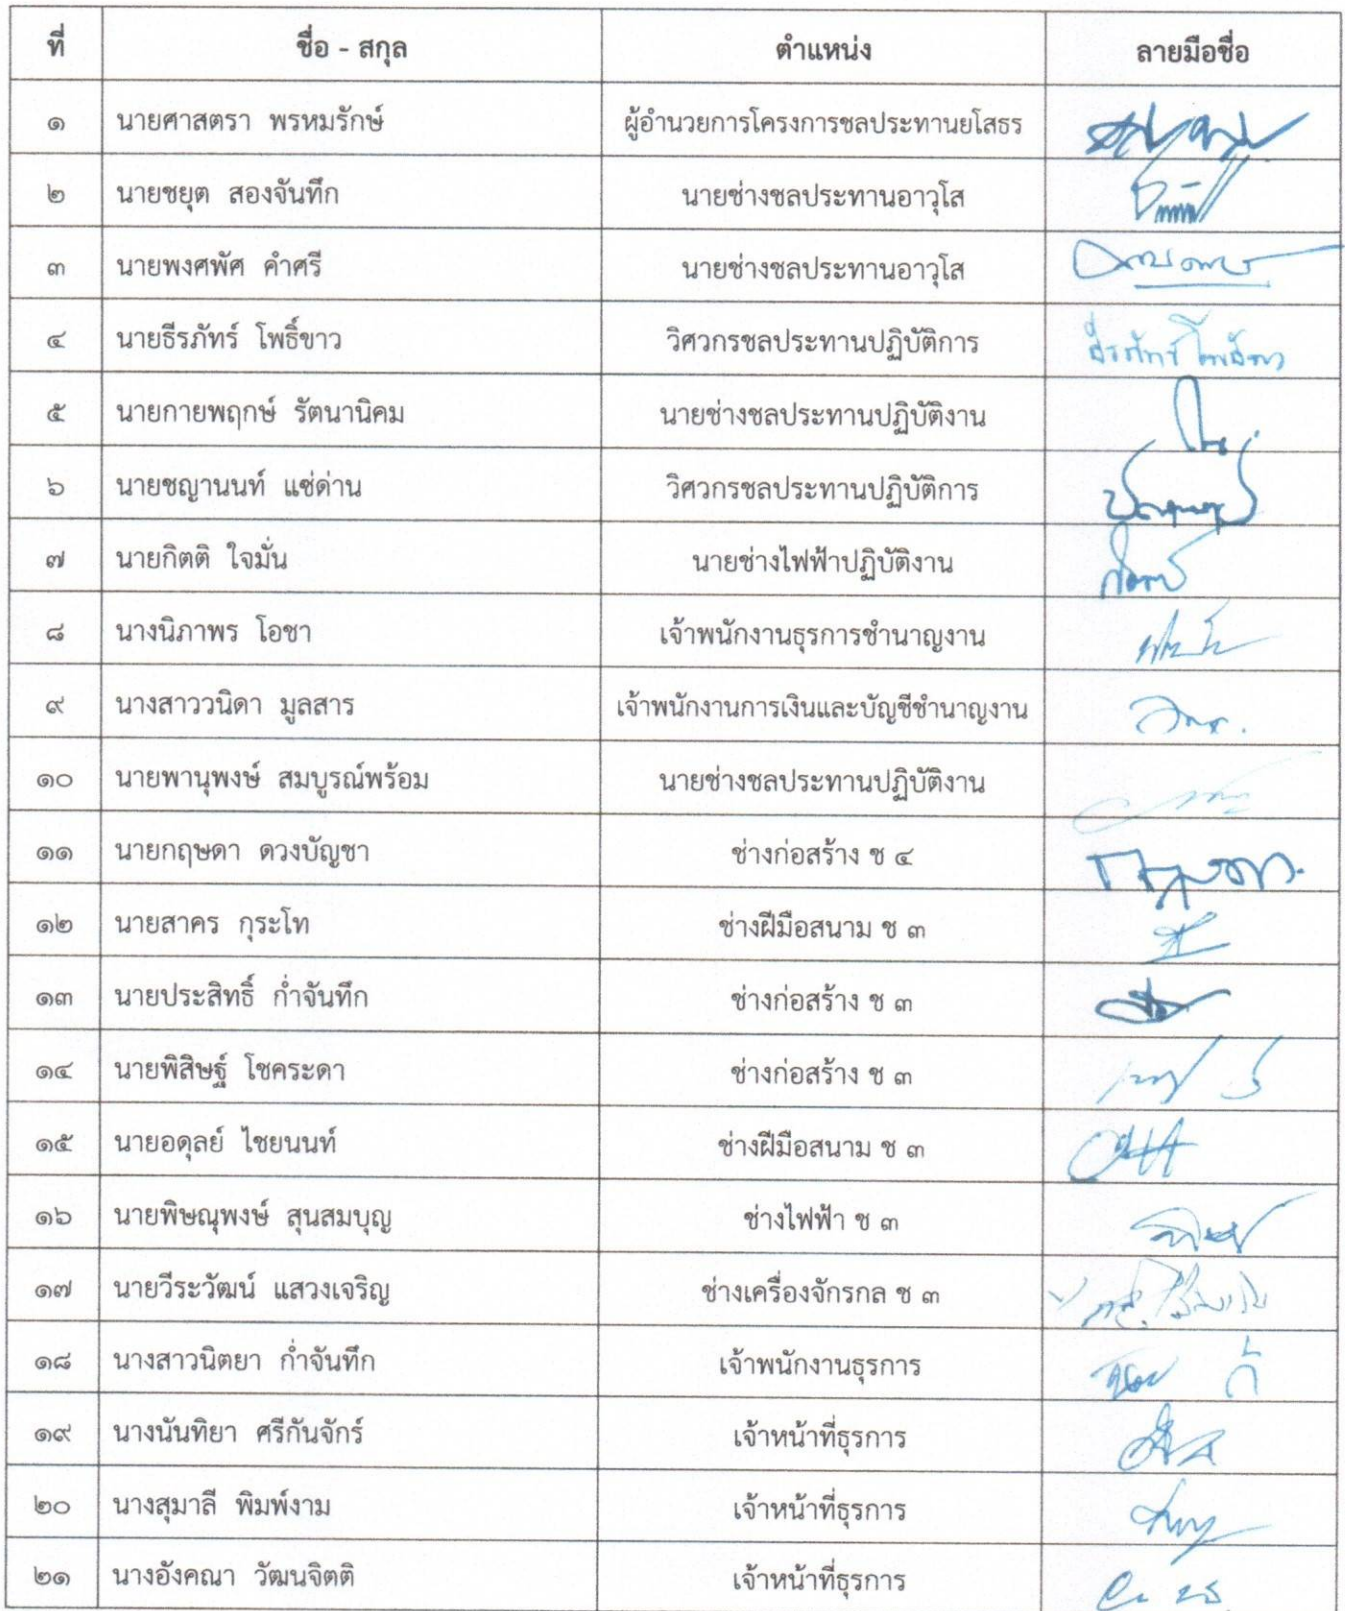 ที่ ชื่อ - สกุล ตำแหน่ง ลายมือชื่อ
๑ นายศาสตรา พรหมรักษ์ ผู้อำนวยการโครงการชลประทานยโสธร
๒ นายชยุต สองจันทึก นายช่างชลประทานอาวุโส
๓ นายพงศพัศ คำศรี นายช่างชลประทานอาวุโส
๔ นายธีรภัทร์ โพธิ์ขาว วิศวกรชลประทานปฏิบัติการ ธีรภัทร์ โพธิ์ขาว
๕ นายกายพฤกษ์ รัตนานิคม นายช่างชลประทานปฏิบัติงาน
๖ นายชญานนท์ แซ่ด่าน วิศวกรชลประทานปฏิบัติการ
๗ นายกิตติ ใจมั่น นายช่างไฟฟ้าปฏิบัติงาน
๘ นางนิภาพร โอชา เจ้าพนักงานธุรการชำนาญงาน
๙ นางสาววนิดา มูลสาร เจ้าพนักงานการเงินและบัญชีชำนาญงาน
๑๐ นายพานุพงษ์ สมบูรณ์พร้อม นายช่างชลประทานปฏิบัติงาน
๑๑ นายกฤษดา ดวงบัญชา ช่างก่อสร้าง ช ๔
๑๒ นายสาคร กุระโท ช่างฝีมือสนาม ช ๓
๑๓ นายประสิทธิ์ ก่ำจันทึก ช่างก่อสร้าง ช ๓
๑๔ นายพิสิษฐ์ โชคระดา ช่างก่อสร้าง ช ๓
๑๕ นายอดุลย์ ไชยนนท์ ช่างฝีมือสนาม ช ๓
๑๖ นายพิษณุพงษ์ สุนสมบุญ ช่างไฟฟ้า ช ๓
๑๗ นายวีระวัฒน์ แสวงเจริญ ช่างเครื่องจักรกล ช ๓
๑๘ นางสาวนิตยา ก่ำจันทึก เจ้าพนักงานธุรการ
๑๙ นางนันทิยา ศรีกันจักร์ เจ้าหน้าที่ธุรการ
๒๐ นางสุมาลี พิมพ์งาม เจ้าหน้าที่ธุรการ
๒๑ นางอังคณา วัฒนจิตติ เจ้าหน้าที่ธุรการ